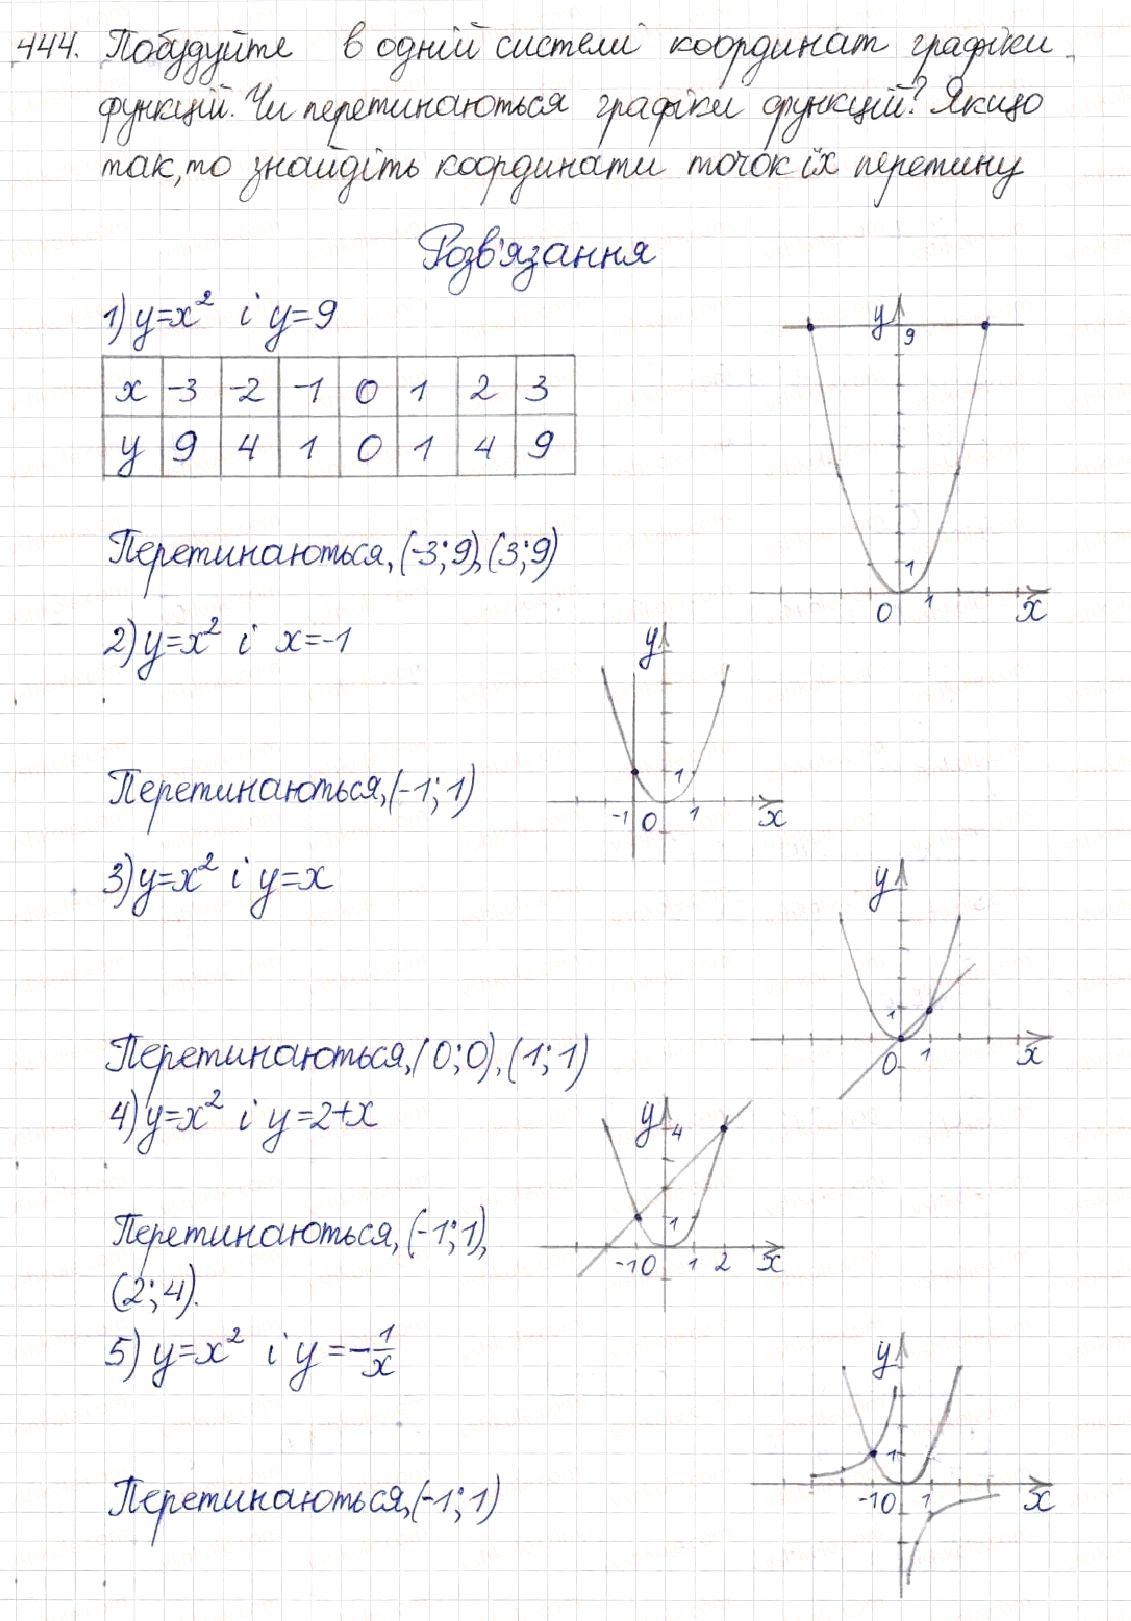 444. Побудуйте в одній системі координат графіки
функцій. Чи перетинаються графіки функцій? Якщо
так, то знайдіть координати точок їх перетину
Розв'язання
1) y=x² і y=9
x -3 -2 -1 0 1 2 3
y 9 4 1 0 1 4 9
y 9
1
0 1 x
Перетинаються, (-3; 9), (3; 9)
2) y=x² і x=-1
y
1
-1 0 1 x
Перетинаються, (-1; 1)
3) y=x² і y=x
y
1
0 1 x
Перетинаються, (0; 0), (1; 1)
4) y=x² і y=2+x
y 4
1
-1 0 1 2 x
Перетинаються, (-1; 1),
(2; 4).
5) y=x² і y=-1/x
y
1
-1 0 1 x
Перетинаються, (-1; 1)